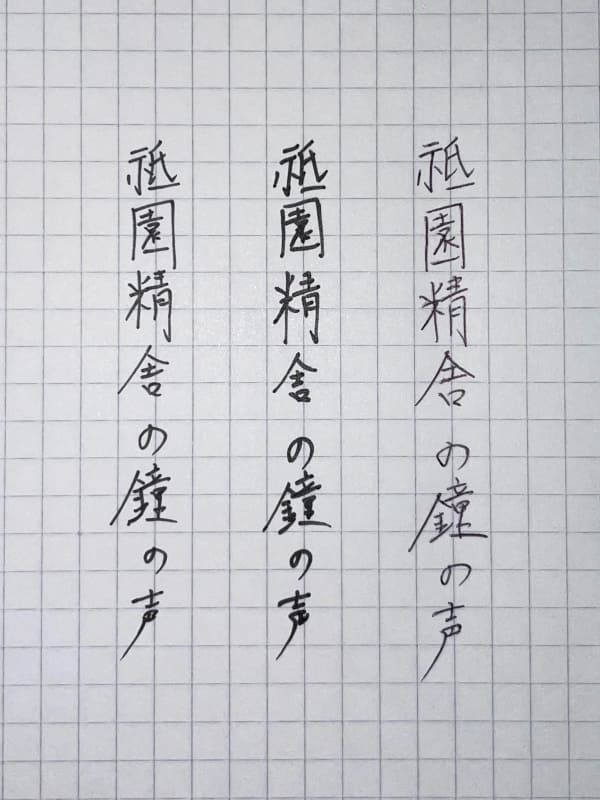 祇園精舎の鐘の声
祇園精舎の鐘の声
祇園精舎の鐘の声